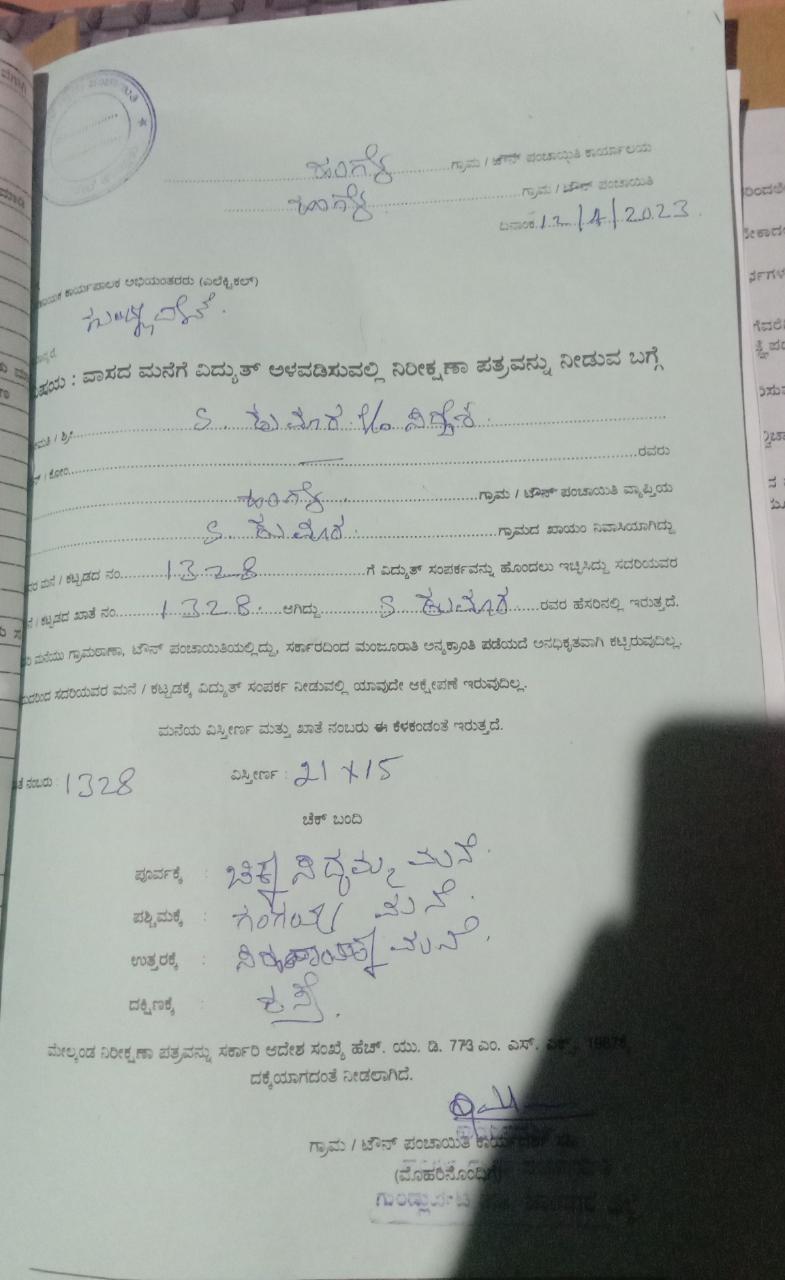 ಹಂಗಳ ಗ್ರಾಮ / ಟೌನ್ ಪಂಚಾಯಿತಿ ಕಾರ್ಯಾಲಯ
ಹಂಗಳ ಗ್ರಾಮ / ಟೌನ್ ಪಂಚಾಯಿತಿ
ದಿನಾಂಕ 12/4/2023
ಕಾರ್ಯಪಾಲಕ ಅಭಿಯಂತರರು (ಎಲೆಕ್ಟ್ರಿಕಲ್)
ವಿಷಯ : ವಾಸದ ಮನೆಗೆ ವಿದ್ಯುತ್ ಅಳವಡಿಸುವಲ್ಲಿ ನಿರೀಕ್ಷಣಾ ಪತ್ರವನ್ನು ನೀಡುವ ಬಗ್ಗೆ
/ ಶ್ರೀ S. ಕುಮಾರ
/ ಕೋಂ ರವರು
ಹಂಗಳ ಗ್ರಾಮ / ಟೌನ್ ಪಂಚಾಯಿತಿ ವ್ಯಾಪ್ತಿಯ
S. ಕುಮಾರ ಗ್ರಾಮದ ಖಾಯಂ ನಿವಾಸಿಯಾಗಿದ್ದು
ಮನೆ / ಕಟ್ಟಡದ ನಂ. 1328 ಗೆ ವಿದ್ಯುತ್ ಸಂಪರ್ಕವನ್ನು ಹೊಂದಲು ಇಚ್ಛಿಸಿದ್ದು ಸದರಿಯವರ
/ ಕಟ್ಟಡದ ಖಾತೆ ನಂ. 1328. ಆಗಿದ್ದು S ಕುಮಾರ ರವರ ಹೆಸರಿನಲ್ಲಿ ಇರುತ್ತದೆ.
ಮನೆಯು ಗ್ರಾಮಠಾಣಾ, ಟೌನ್ ಪಂಚಾಯಿತಿಯಲ್ಲಿದ್ದು, ಸರ್ಕಾರದಿಂದ ಮಂಜೂರಾತಿ ಅನ್ಯಕ್ರಾಂತಿ ಪಡೆಯದೆ ಅನಧಿಕೃತವಾಗಿ ಕಟ್ಟಿರುವುದಿಲ್ಲ.
ಸದರಿಯವರ ಮನೆ / ಕಟ್ಟಡಕ್ಕೆ ವಿದ್ಯುತ್ ಸಂಪರ್ಕ ನೀಡುವಲ್ಲಿ ಯಾವುದೇ ಆಕ್ಷೇಪಣೆ ಇರುವುದಿಲ್ಲ.
ಮನೆಯ ವಿಸ್ತೀರ್ಣ ಮತ್ತು ಖಾತೆ ನಂಬರು ಈ ಕೆಳಕಂಡಂತೆ ಇರುತ್ತದೆ.
ನಂಬರು : 1328 ವಿಸ್ತೀರ್ಣ : 21 x 15
ಚೆಕ್ ಬಂದಿ
ಪೂರ್ವಕ್ಕೆ : ಚಿಕ್ಕ ಸಿದ್ದಮ್ಮ ಮನೆ.
ಪಶ್ಚಿಮಕ್ಕೆ : ಗಂಗಯ್ಯ ಮನೆ.
ಉತ್ತರಕ್ಕೆ : ಮನೆ.
ದಕ್ಷಿಣಕ್ಕೆ : ರಸ್ತೆ.
ಮೇಲ್ಕಂಡ ನಿರೀಕ್ಷಣಾ ಪತ್ರವನ್ನು ಸರ್ಕಾರಿ ಆದೇಶ ಸಂಖ್ಯೆ ಹೆಚ್. ಯು. ಡಿ. 773 ಎಂ. ಎಸ್.
ದಕ್ಕೆಯಾಗದಂತೆ ನೀಡಲಾಗಿದೆ.
ಗ್ರಾಮ / ಟೌನ್ ಪಂಚಾಯಿತಿ
(ಮೊಹರಿನೊಂದಿಗೆ)